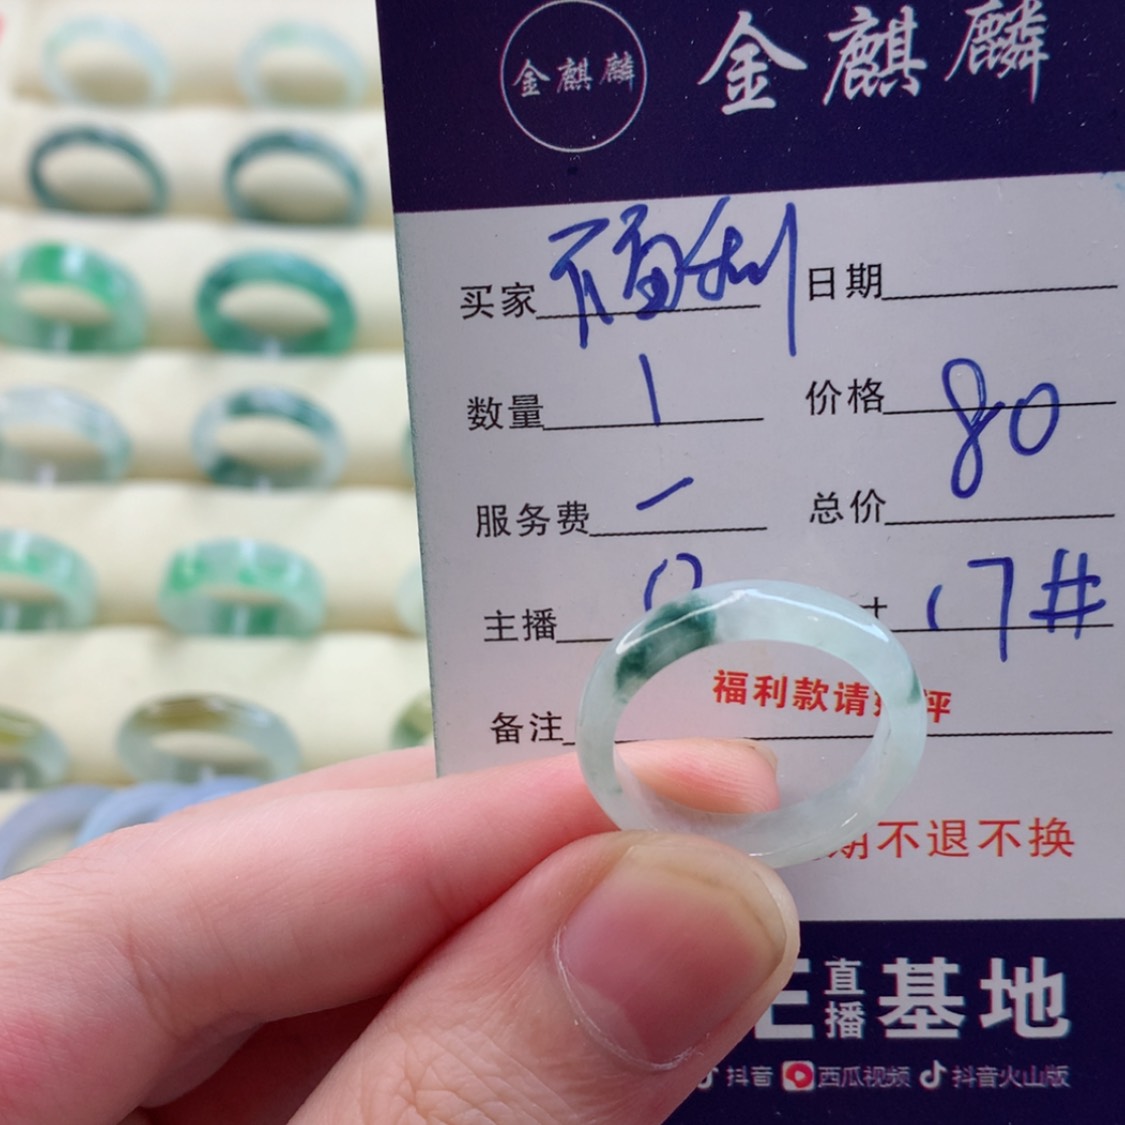 金麒麟
金麒麟
买家 福利 日期
数量 1 价格 80
服务费 一 总价
主播 17#
福利款请 评
备注
期不退不换
直播基地
抖音 西瓜视频 抖音火山版